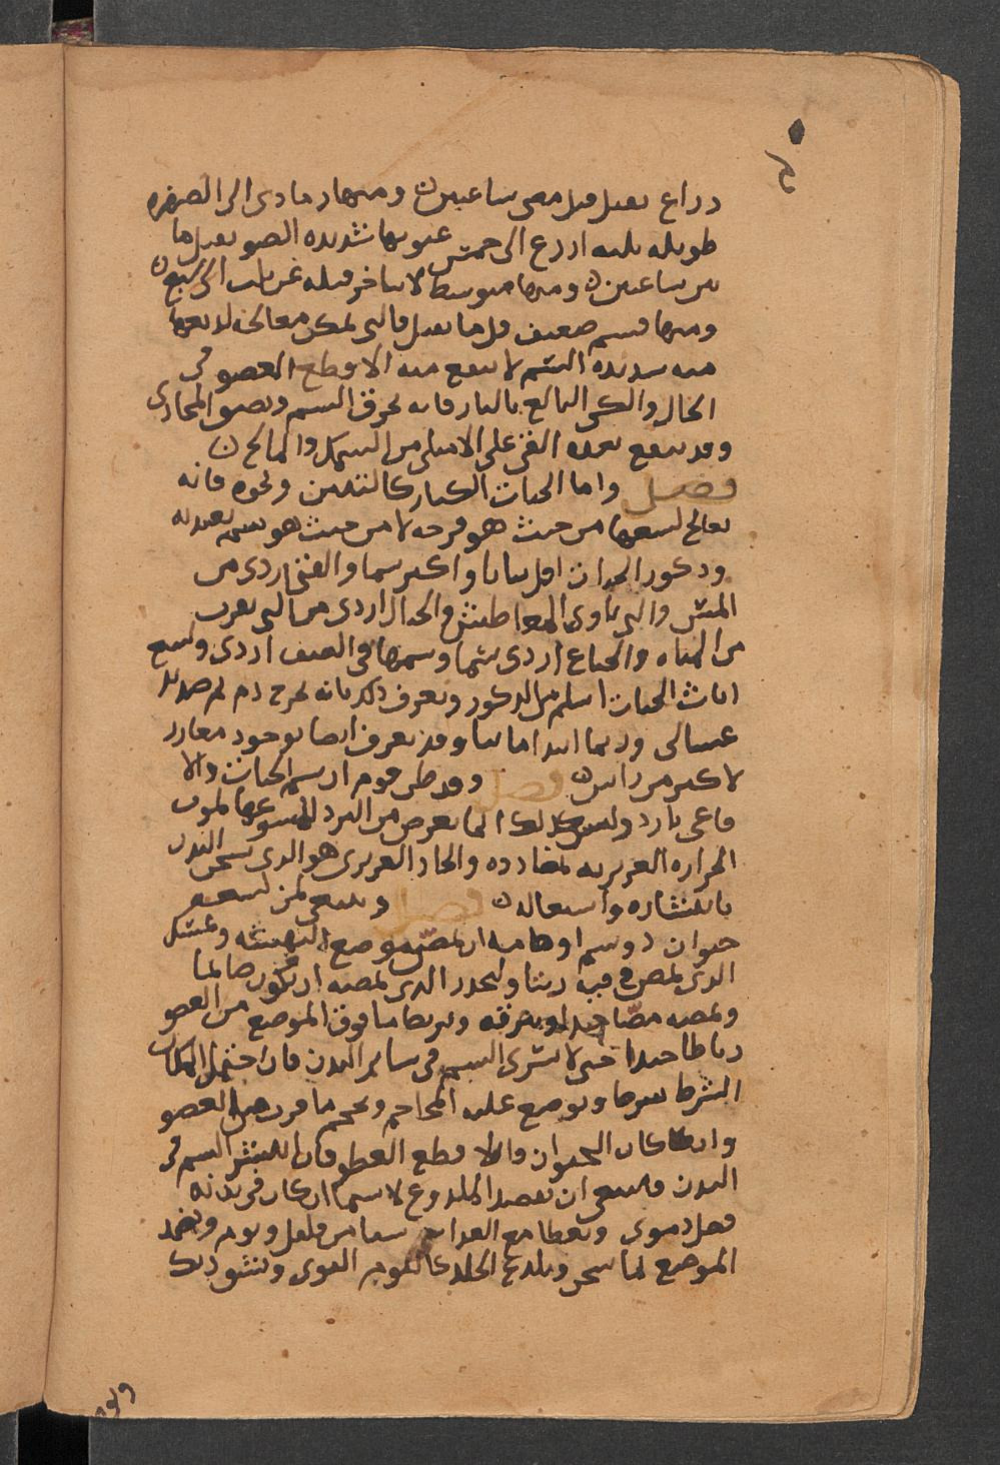 ذراع يقتل قبل مضي ساعتين ومنها رمادي الى الصفره
طويله ثلثه اذرع الى خمس عيونها شديده الضو يقتل ما
بين ساعتين ومنها متوسط لا يتاخر قتله عن ثلث الى
ومنها قسم ضعيف قل ما يقتل فالتى يمكن معالجه لدعها
منه شديده السم لا ينفع منه الا قطع العضو فى
الحال والكى البالغ بالنار فانه يحرق السم ويضيق المجارى
وقد ينفع بعده القى على الامتلى من السمك المالح
فصل واما الحيات الكبار كالتنين ونحوه فانه
يعالج لسعها من حيث هو قرحه لا من حيث هو سم يعتد به
وذكور الحيات اقل نابا واكثر سما والفتى اردى من
المسن والتى تاوى المعاطش والجبال اردى من التى تقرب
من المياه والجياع اردى سما وسمها فى الصيف اردى ولسع
اناث الحيات اسلم من الذكور ويعرف ذلك بانه يخرج دم ثم صديد
غسالى وربما ابتدا مائيا وقد يعرف ايضا بوجود مغارز
لاكثر من نابين فصل وقد ظن قوم ان سم الحيات والا
فاعى بارد وليس كذلك انما يعرض من البرد للملسوع بها لموت
الحراره الغريزيه لمضادده والحار الغريزى هو الذى يسخن البدن
بانتشاره واشتعاله فصل وينبغى لمن لسعه
حيوان ذو سم او هامه ان يمص موضع النهشه ويمسك
الذى يمص فى فيه زيتا وليحذر الذى يمصه ان يكون صايما
ويمصه مصا جيدا ويبزقه ويربط ما فوق الموضع من العضو
رباطا جيدا حتى لا يسرى السم فى ساير البدن فان احتمل المكان
الشرط شرط ويوضع عليه المحاجم ويحجم ما قرب من العضو
وان كان الحيوان قتالا قطع العضو فان انتشر السم فى
البدن فينبغى ان يفصد الملدوغ لا سيما ان كان فى بدنه
فضل دموى ويعطا مع الغدا شيا من فلفل وثوم ويضمد
الموضع بما يسخن ويلذع الجلد كالثوم القوى ويشق ديك